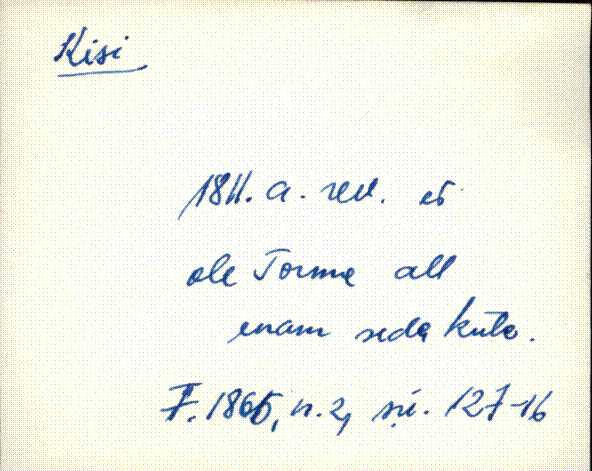 Kisi
1811. a. rev. ei
ole Torma all
enam seda küla.
F. 1865, n. 2, sü. 127-16